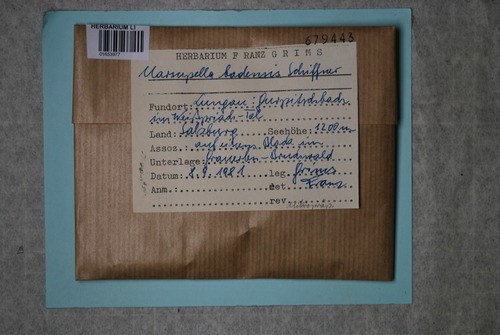 HERBARIUM LI
679443
HERBARIUM FRANZ GRIMS
Marsupella badensis Schiffner
Fundort: Lungau:
im Weißpriach-Tal
Land: Salzburg Seehöhe: 1200 m
Assoz. auf im
Unterlage: Grauerlen-Bruchwald
Datum: 8.9.1981 leg. Grims
Anm.: det Franz
rev.